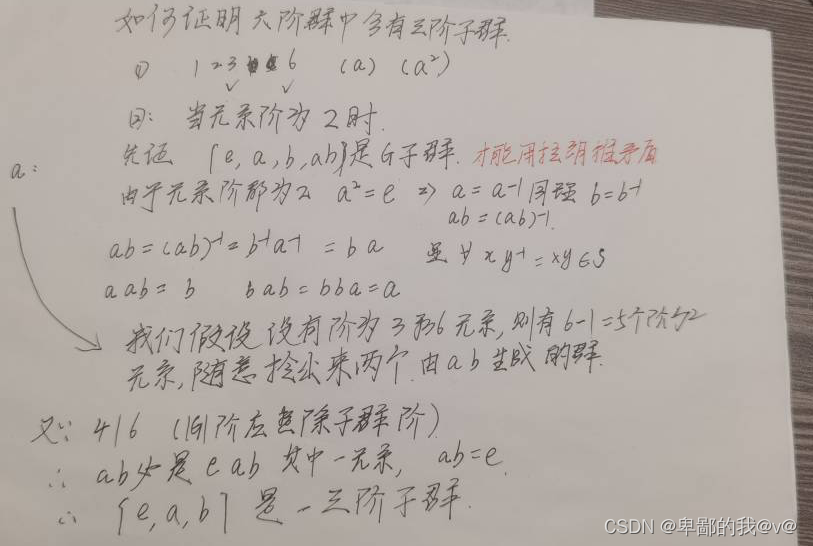 如何证明六阶群中含有三阶子群.
① 1 2 3 6 (a) (a²)
②: 当元素阶为2时.
先证 {e, a, b, ab}是G子群. 才能用拉朗推矛盾
a:
由于元素阶都为2 a²=e ⇒ a=a-1 同理 b=b⁻¹
ab=(ab)-1.
ab=(ab)⁻¹=b⁻¹a-1 =ba ∀ xy⁻¹=xy∈S
aab=b bab=bba=a
我们假设没有阶为3和6元素,则有6-1=5个阶为2
元素,随意拎出来两个.由ab生成的群.
又∵ 4∤6 (|G|阶应整除子群阶)
∴ ab必是e a b其中一元素, ab=e.
∴ {e,a,b} 是一三阶子群.
CSDN @卑鄙的我@v@